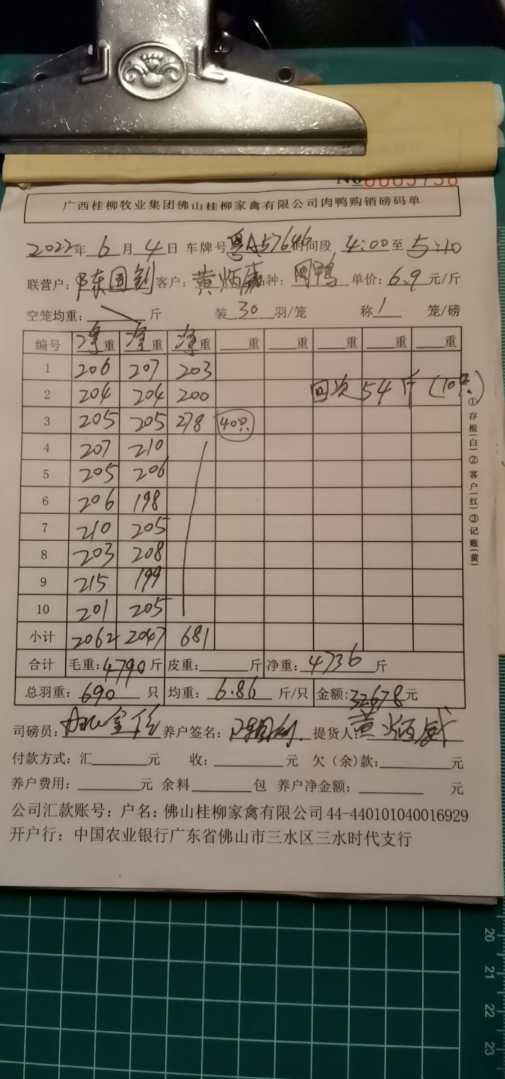 广西桂柳牧业集团佛山桂柳家禽有限公司肉鸭购销磅码单
2022年 6 月 4 日 车牌号 时间段 4:00 至 5:10
联营户: 陈国钊 客户: 黄炳威 品种: 肉鸭 单价: 6.9 元/斤
空笼均重: 斤 装 30 羽/笼 称 1 笼/磅
编号 净重 净重 净重 重 重 重 重 重
1 206 207 203
2 204 204 200 回次 54 斤 (10只)
3 205 205 278 40只
4 207 210
5 205 206
6 206 198
7 210 205
8 203 208
9 215 199
10 201 205
小计 2062 2047 681
合计 毛重: 4790 斤 皮重: 斤 净重: 4736 斤
总羽重: 690 只 均重: 6.86 斤/只 金额: 32678 元
司磅员: 养户签名: 提货人: 黄炳威
付款方式: 汇 元 收: 元 欠(余)款: 元
养户费用: 元 余料 包 养户净金额: 元
公司汇款账号: 户名: 佛山桂柳家禽有限公司 44-440101040016929
开户行: 中国农业银行广东省佛山市三水区三水时代支行
①存根(白)②客户(红)③记账(黄)
20
21
22
23